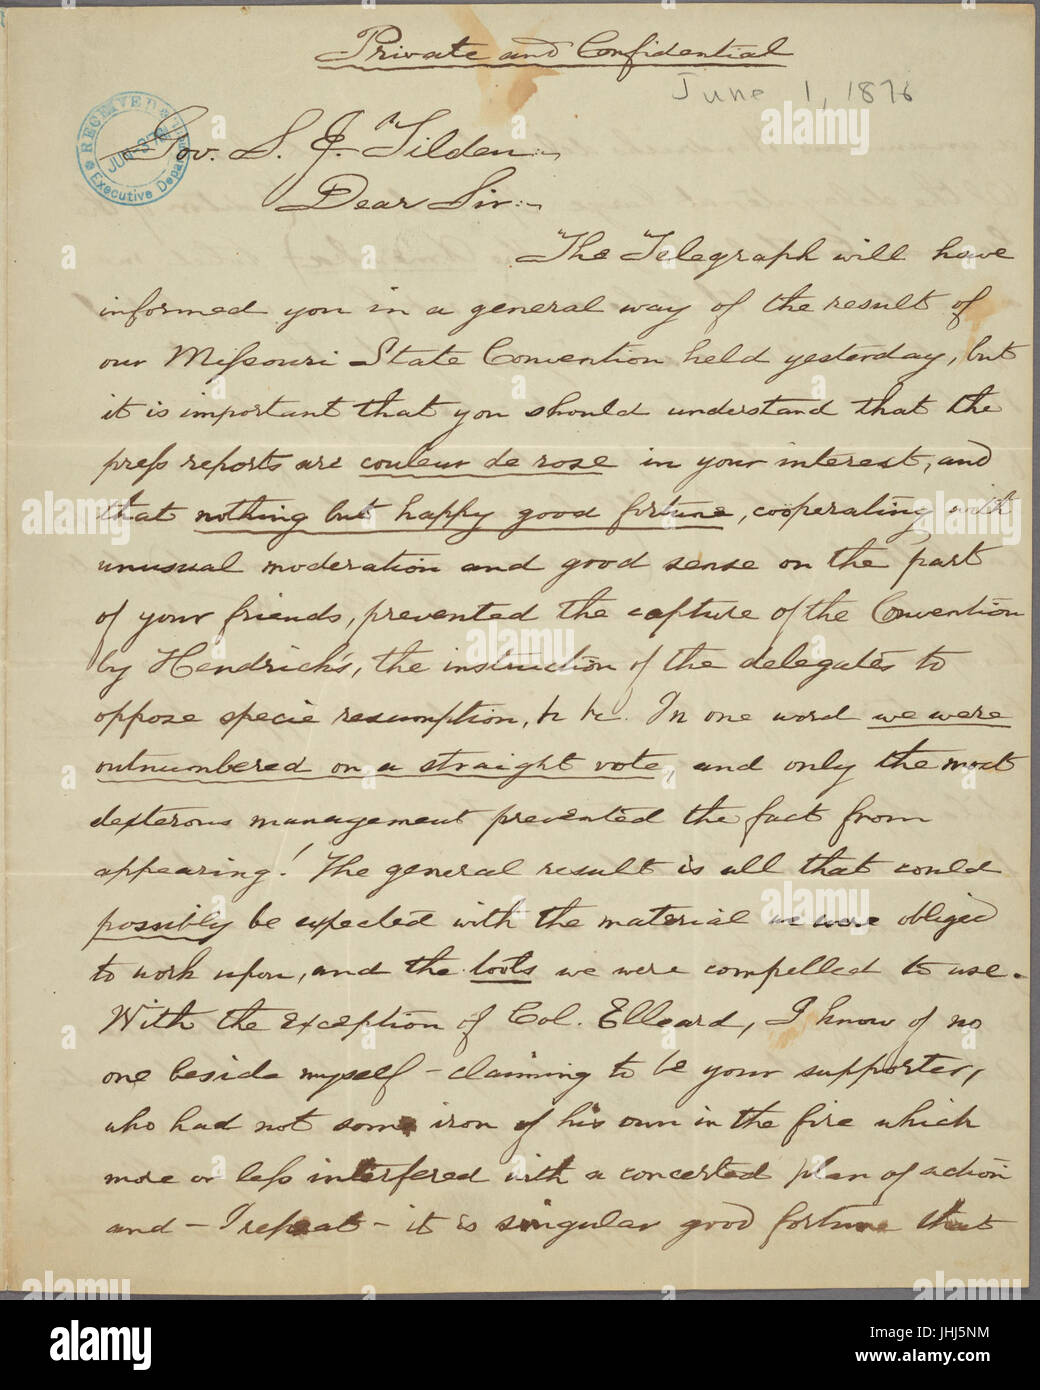 Private and Confidential
June 1, 1876
RECEIVED
JUN 3 76
Executive Depa
Gov. S. J. Tilden:-
Dear Sir:-
The Telegraph will have
informed you in a general way of the result of
our Missouri State Convention held yesterday, but
it is important that you should understand that the
press reports are couleur de rose in your interest, and
that nothing but happy good fortune, coöperating with
unusual moderation and good sense on the part
of your friends, prevented the capture of the Convention
by Hendricks, the instruction of the delegates to
oppose specie resumption, &c &c. In one word we were
outnumbered on a straight vote, and only the most
dexterous management prevented the fact from
appearing! The general result is all that could
possibly be expected with the material we were obliged
to work upon, and the tools we were compelled to use.
With the exception of Col. Elleard, I know of no
one beside myself - claiming to be your supporter,
who had not some iron of his own in the fire which
more or less interfered with a concerted plan of action
and - I repeat - it is singular good fortune that
alamy
alamy stock photo
JHJ5NM
www.alamy.com